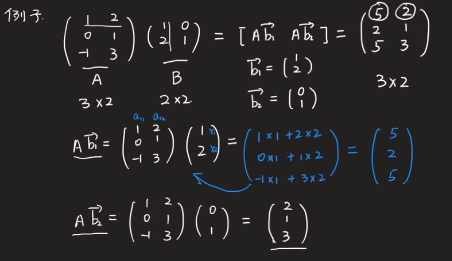 例子.
( 1 2 / 0 1 / -1 3 ) ( 1 0 / 2 1 ) = [ A b₁⃗ A b₂⃗ ] = ( 5 2 / 2 1 / 5 3 )
A B b₁⃗ = ( 1 / 2 )
3×2 2×2 b₂⃗ = ( 0 / 1 ) 3×2
a₁₁ a₁₂
A b₁⃗ = ( 1 2 / 0 1 / -1 3 ) ( 1 / 2 ) = ( 1×1+2×2 / 0×1+1×2 / -1×1+3×2 ) = ( 5 / 2 / 5 )
A b₂⃗ = ( 1 2 / 0 1 / -1 3 ) ( 0 / 1 ) = ( 2 / 1 / 3 )